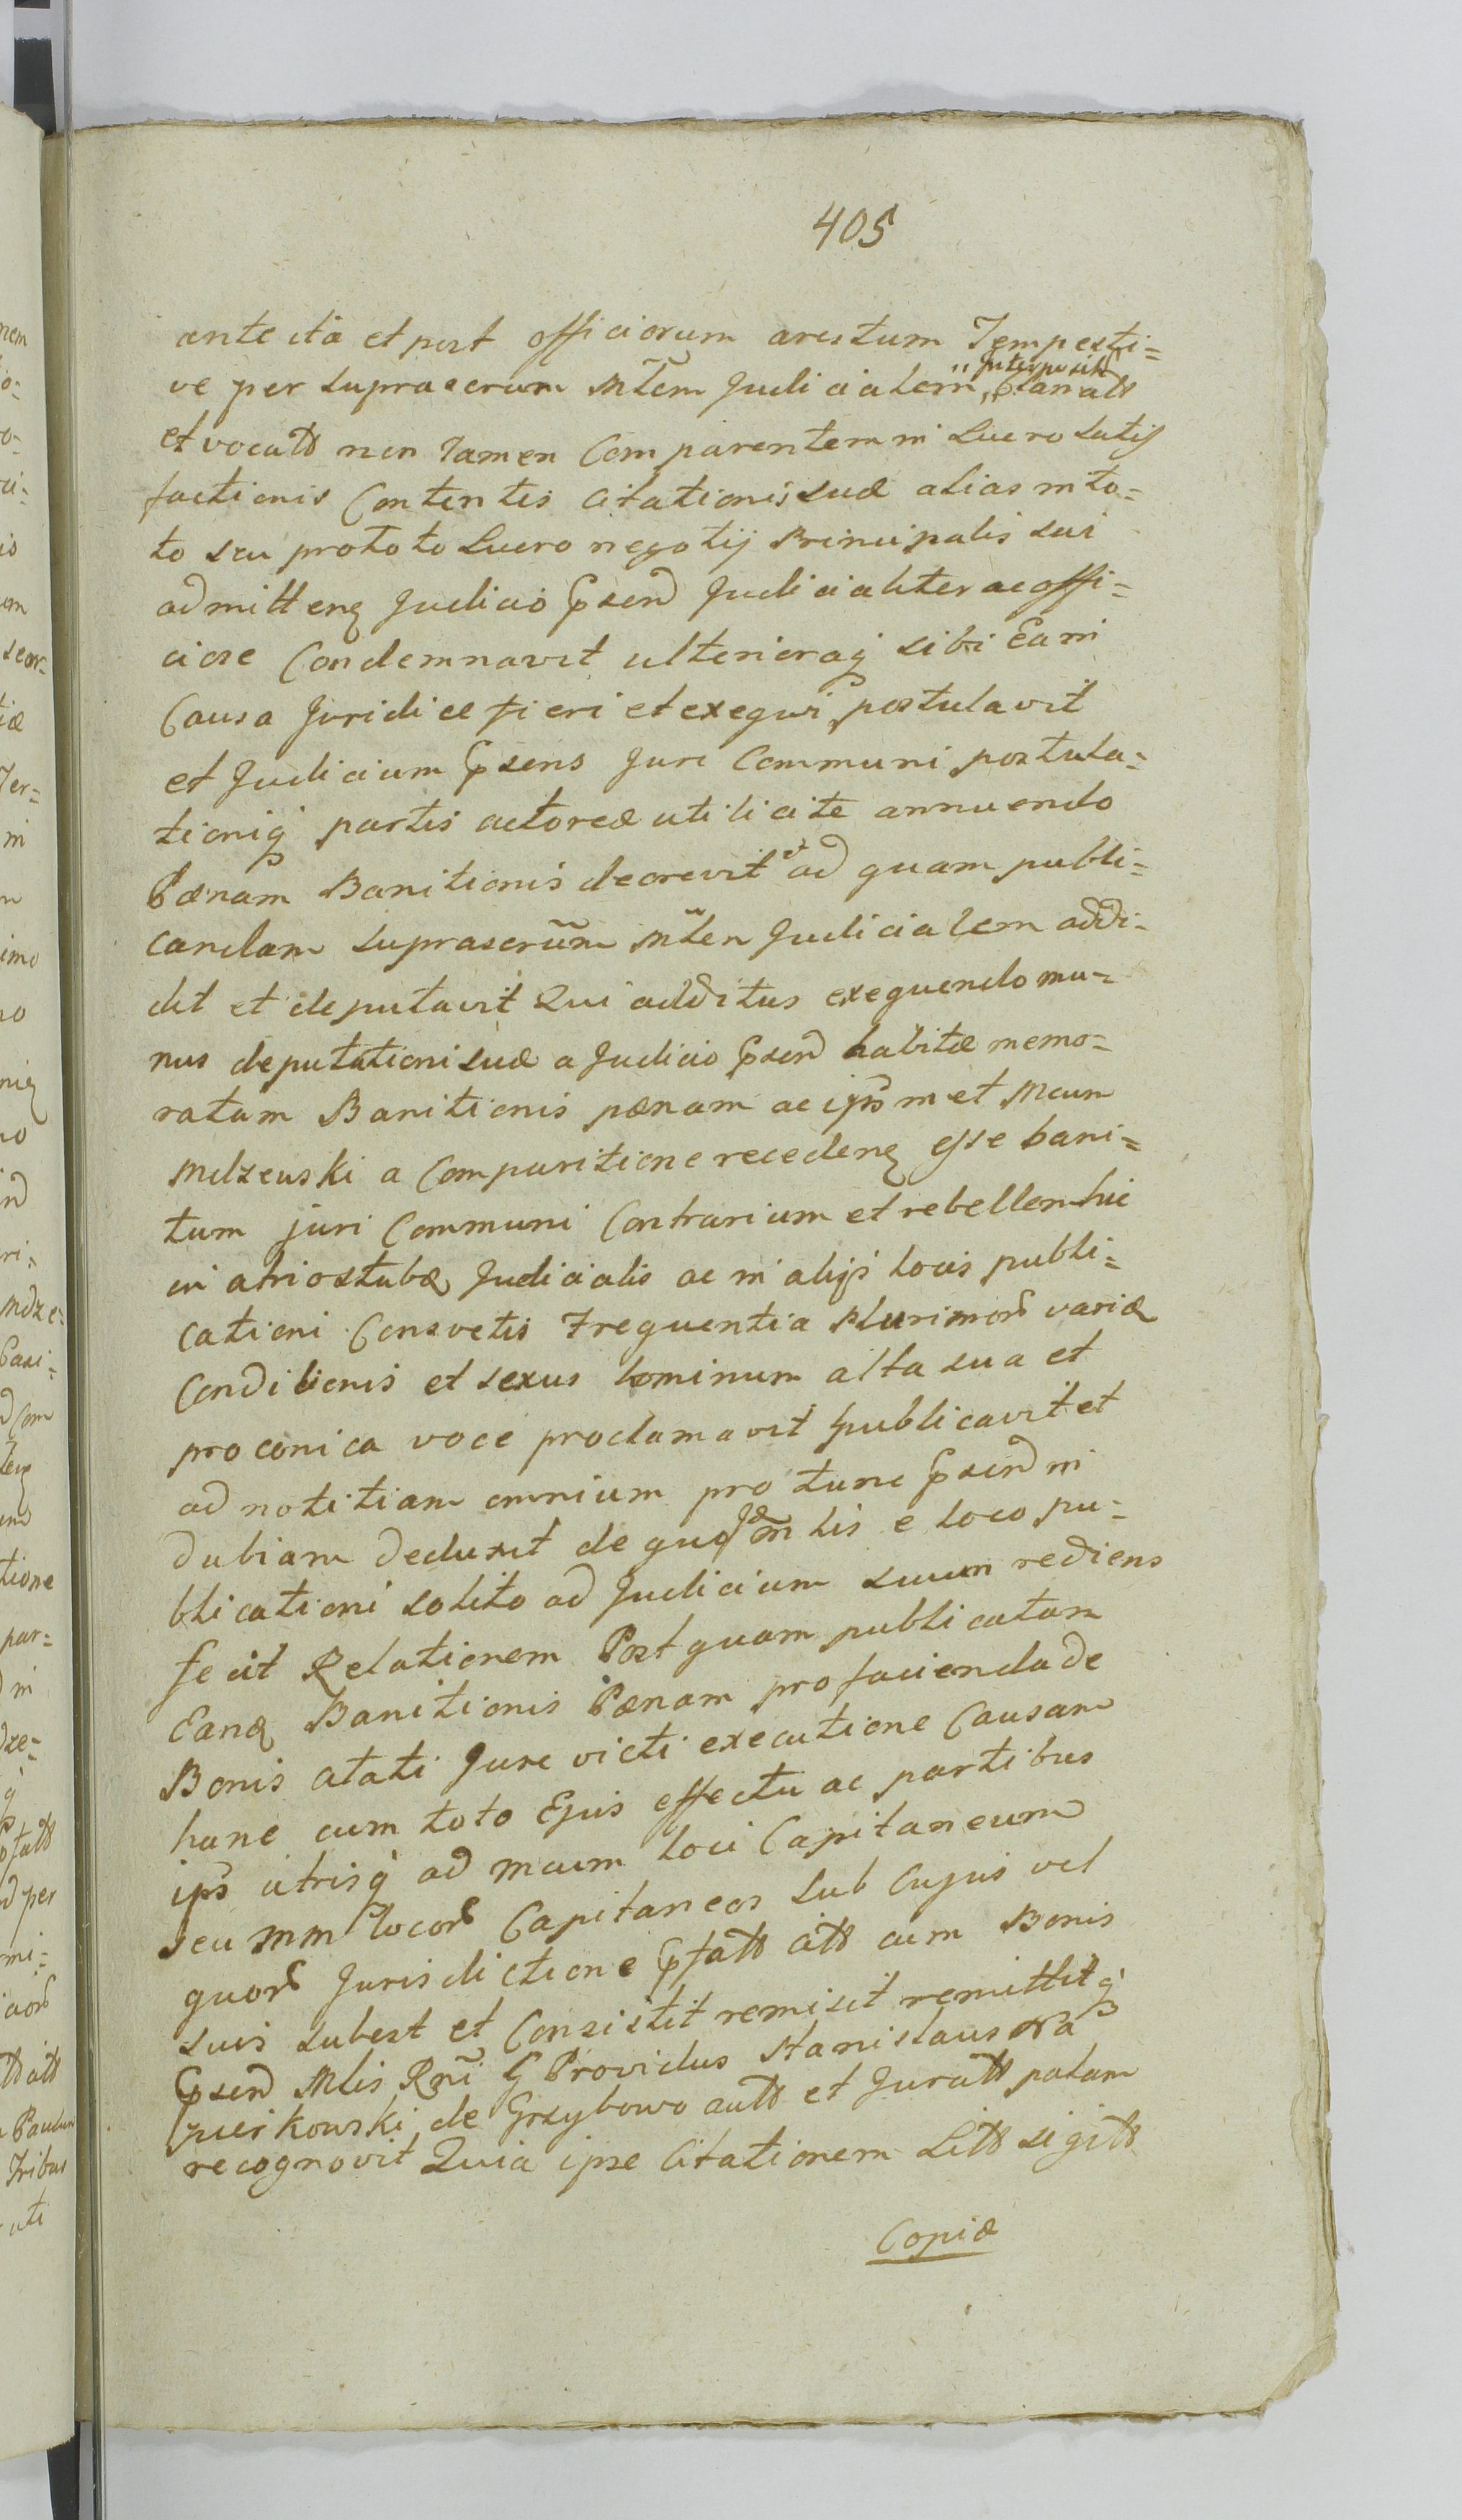 405
ante ita et post officiorum arestum Tempesti=
ve per suprascrum Mtem Judicialem „ Interposit „ Clamatt
et vocatt non tamen Comparentem in Lucro satis
factionis Contentis Citationis suæ alias in to=
to seu pro toto Lucro negotij Principalis sui
admittenq Judicio Psend Judicialiter ac offi=
ciose Condemnavit ulterioraq sibi Ea in
Causa Juridice fieri et exequi postulavit
et Judicium Psens Juri Communi postula=
tioniq partis actoreæ utilicite annuendo
Pœnam Banitionis decrevit et ad quam publi=
candam suprascrūm Mlem Judicialem addi=
dit et deputavit Qui additus exequendo mu=
nus deputationi suæ a Judicio Psend habitæ memo=
ratam Banitionis pœnam ac ipsmet Mcum
Mdzewski a Comparitione recedenq esse bani=
tum juri Communi Contrarium et rebellem hic
in atrio stubæ Judicialis ac in alijs locis publi=
cationi Consvetis Frequentia Plurimor variæ
Conditionis et sexus hominum alta sua et
proconica voce proclamavit publicavit et
ad notitiam omnium pro tunc Psend in
dubiam deduxit de quo idem Mlis e loco pu=
blicationi solito ad Judicium suum rediens
fecit Relationem Post quam publicatam
Eanq Banitionis Pœnam pro facienda de
Bonis Citati Jure victi executione Causam
hanc cum toto Ejus effectu ac partibus
ips utrisq ad Mcum loci Capitaneum
seu MM locor Capitaneos sub Cujus vel
quor Jurisdictione Pfatt citt cum Bonis
suis subest et Consistit remisit remittitq
Psend Mlis Rni G Providus Stanislaus Na
pierkowski de Grzybowo autt et Juratt palam
recognovit Quia ipse Citationem Litt sigitt
Copiæ